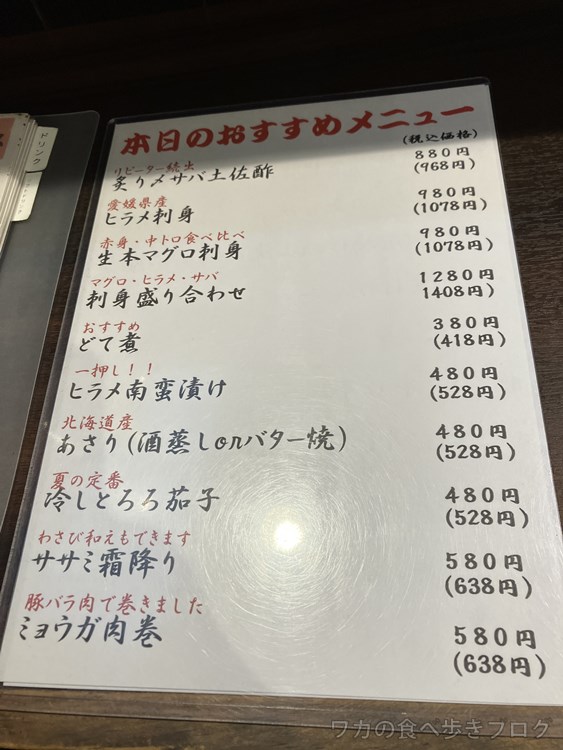 本日のおすすめメニュー
(税込価格)
リピーター続出
炙り〆サバ土佐酢
880円
(968円)
愛媛県産
ヒラメ刺身
980円
(1078円)
赤身・中トロ食べ比べ
生本マグロ刺身
980円
(1078円)
マグロ・ヒラメ・サバ
刺身盛り合わせ
1280円
1408円)
おすすめ
どて煮
380円
(418円)
一押し！！
ヒラメ南蛮漬け
480円
(528円)
北海道産
あさり(酒蒸しorバター焼)
480円
(528円)
夏の定番
冷しとろろ茄子
480円
(528円)
わさび和えもできます
ササミ霜降り
580円
(638円)
豚バラ肉で巻きました
ミョウガ肉巻
580円
(638円)
ドリンク
ワカの食べ歩きブログ